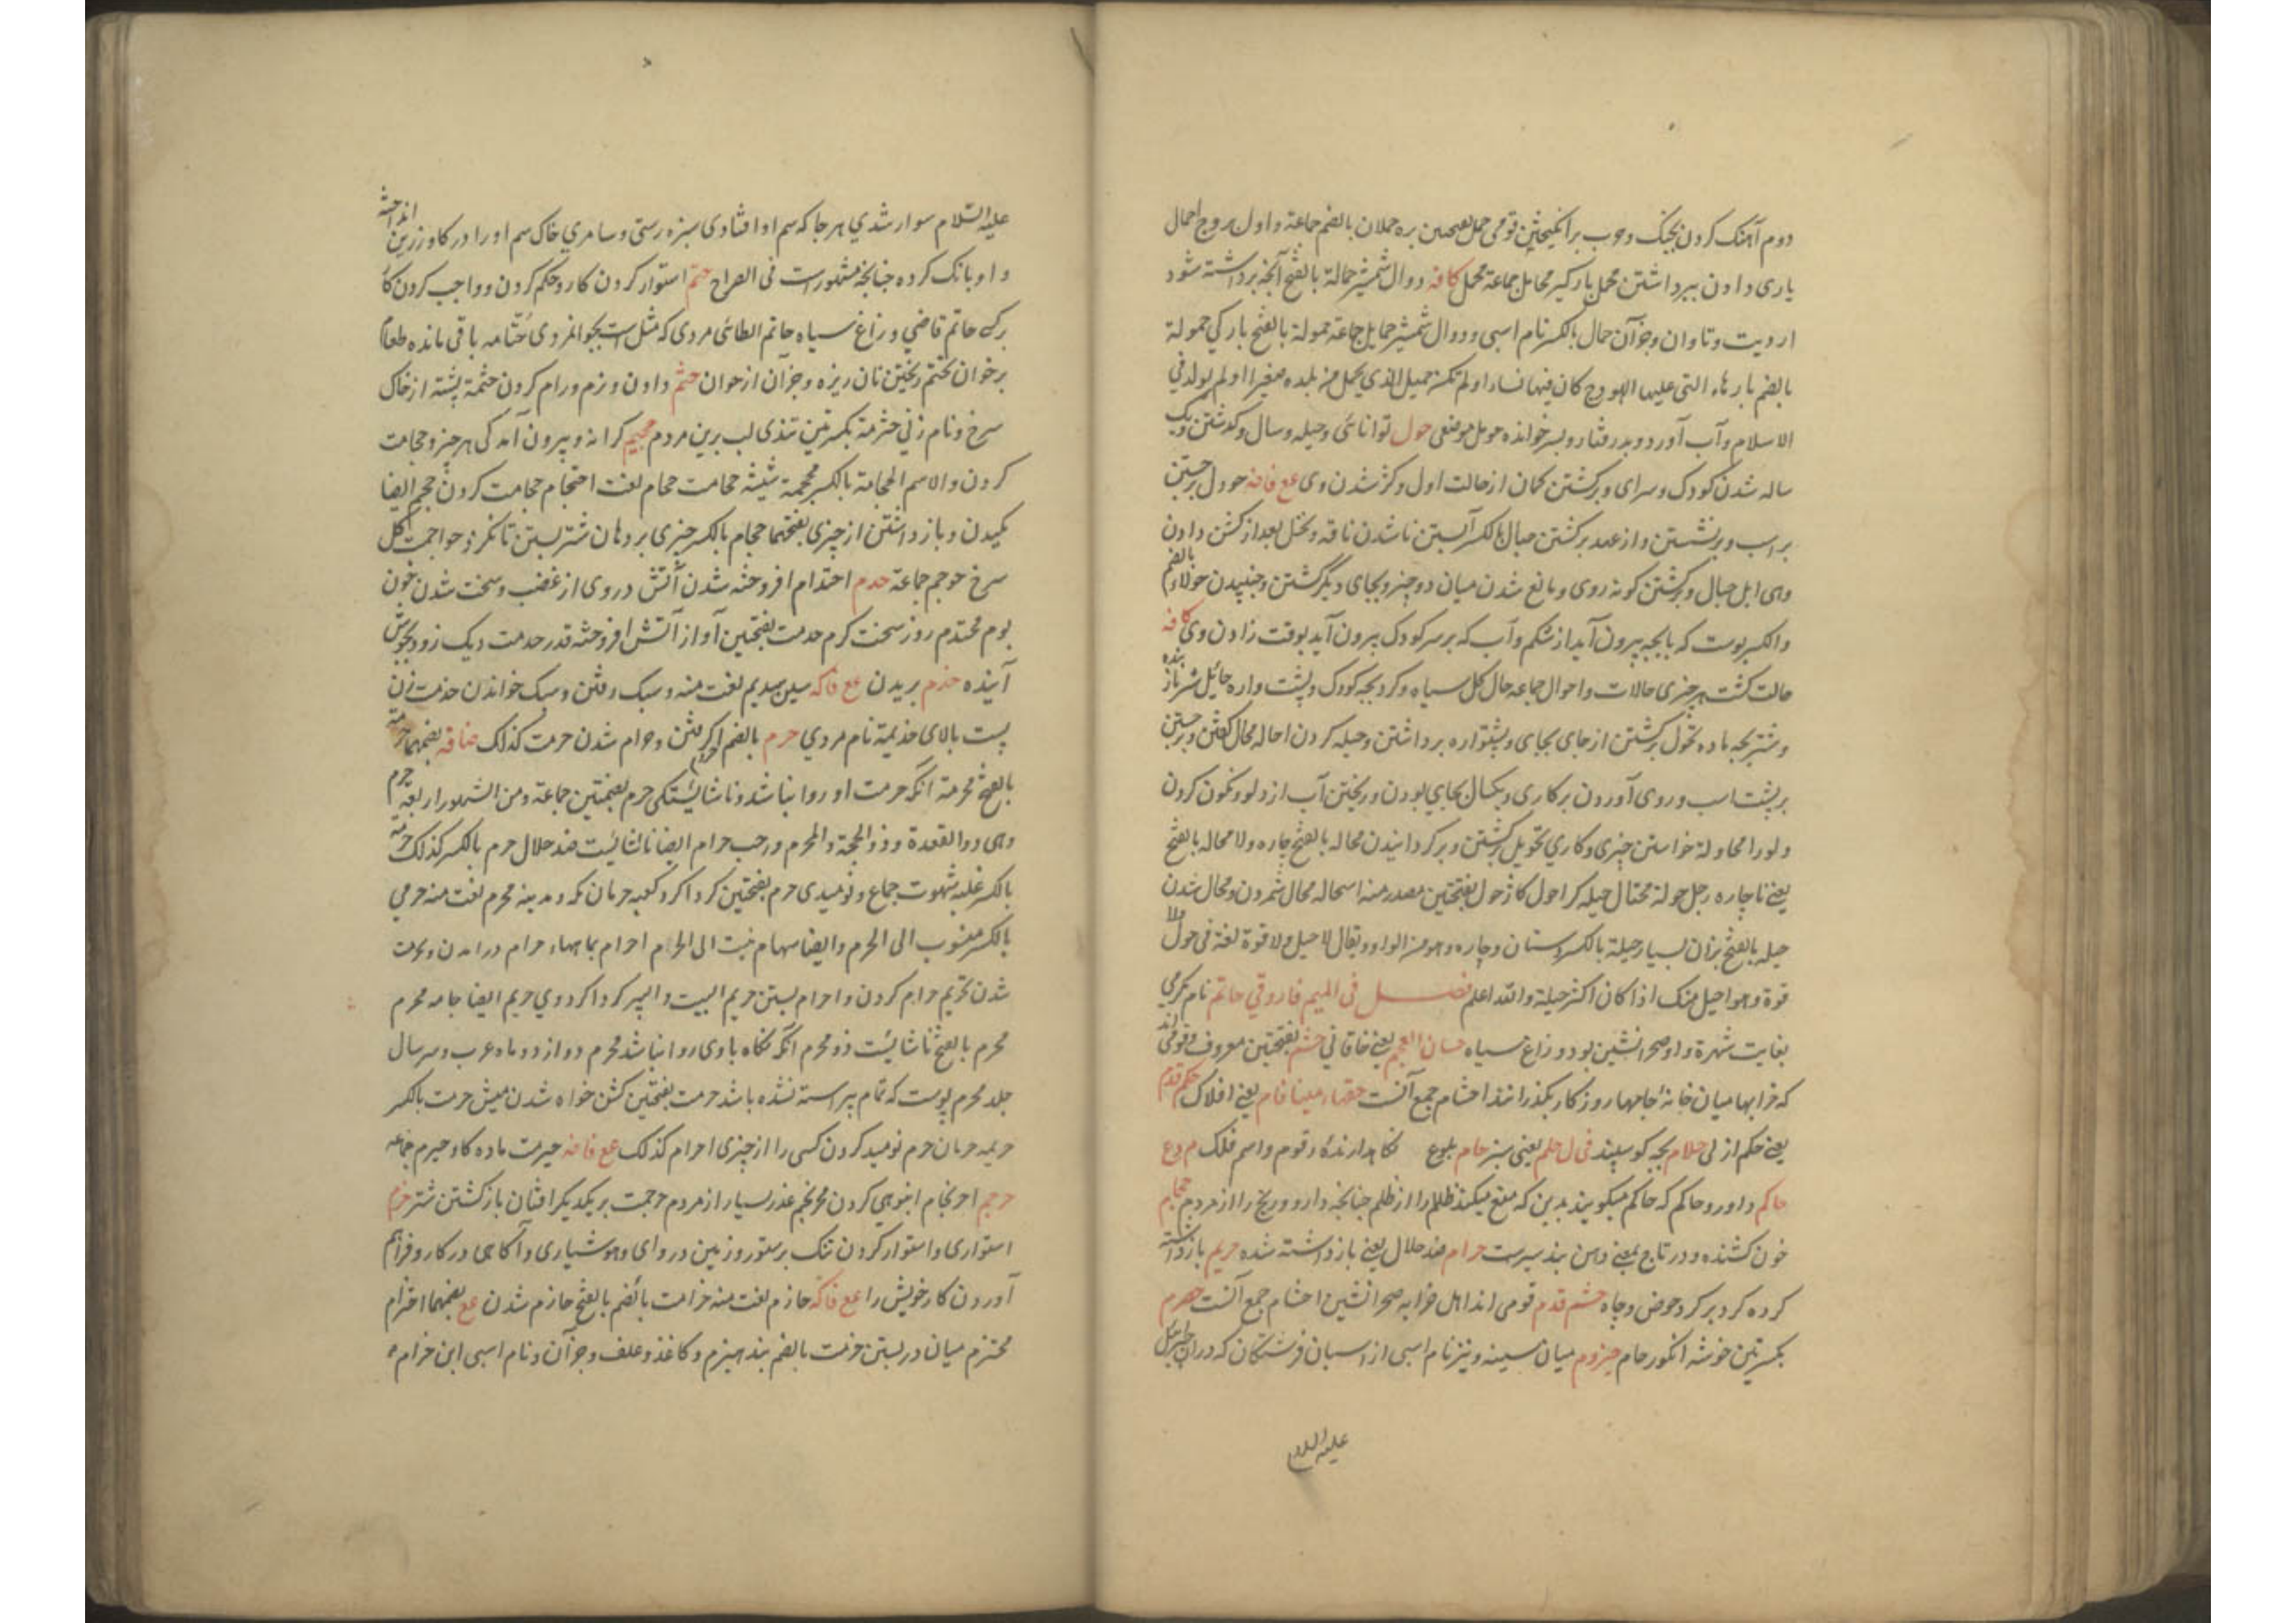 دوم آهنگ کردن بجنگ وحرب برانگیختن قومی حمل بفتحتین بره حملان بالضم جماعة واول بروج احمال
یاری دادن ببرداشتن محمل بارگیر محامل جماعة محمل کافه دوال شمشیر حمالة بالفتح آنچه برداشته شود
از دیت وتاوان وجز آن حمال بالکسر نام اسبی ودوال شمشیر حمایل جماعة حمولة بالفتح بارکی حمولة
بالضم بارهاء التی علیها الهودج کان فیها نساء او لم تکن حمیل الذی یحمل من بلده صغیرا ولم یولد فی
الاسلام وآب آورد وبدرفتار وپسر خوانده حومل موضعی حول توانائی وحیله وسال وگذشتن ویک
ساله شدن کودک وسرای وبرگشتن کمان از حالت اول وکژ شدن وی عع فافه حوول برجستن
بر اسب وبرنشستن واز عهد برگشتن حیال بالکسر آبستن ناشدن ناقه ونخل بعد از گشن دادن
وهی ابل حیال وبرگشتن گونه روی ومانع شدن میان دو چیز وبجای دیگر گشتن وجنبیدن حولاء بالضم
والکسر پوست که با بچه بیرون آید از شکم وآب که بر سر کودک بیرون آید بوقت زادن وی کافه
حالت گشت هر چیزی حالات واحوال جماعه حال گل سیاه وگردبچه کودک وپشت واره حائل شتر نازاینده
وشتر بچه ماده تحول برگشتن از جای بجای وپشتواره برداشتن وحیله کردن احاله محال گفتن وبرجستن
بر پشت اسب وروی آوردن بر کاری ویکسال بجایی بودن وریختن آب از دلو ونگون کردن
دلو را محاولة خواستن چیزی وکاری تحویل برگشتن وبرگردانیدن محاله بالفتح چاره ولا محاله بالفتح
یعنی ناچاره رجل حولة محتال حیله گر احول کاژ حول بفتحتین مصدر منه استحاله محال شمردن ومحال شدن
حیله بالفتح بزان بسیار حیلة بالکسر دستان وچاره وهو من الواو ویقال لا حیل ولا قوة لغة فی حول ولا
قوة وهو احیل منک اذا کان اکثر حیلة والله اعلم فصل فی المیم فاروقی حاتم نام کریمی
بغایت شهرة واو صحرانشین بود وزاغ سیاه حسان العجم یعنی خاقانی حشم بفتحتین معروف وقومی اند
که خرابها میان خانهٔ جامها روز کار بگذرانند احشام جمع آنست حقهاء مینا فام یعنی افلاک حکم قدم
یعنی حکم ازلی حلام بچه کوسپند فی ل حلم یعنی سبز حام بلوع نکاهدارندهٔ وقوم واسم فلک م وع
حاکم داور وحاکم که حاکم میکویند بدین که منع میکند ظلم را از ظلم چنانچه دارو ورنج را از مردم حجام
خون کشنده ودر تاج بمعنی دهن بند سیرست حرام ضد حلال یعنی بازداشته شده حریم بازداشته
کرده گرد بر گرد حوض وچاه حشم قدم قومی اند اهل خرابه صحرانشین احشام جمع آنست حصرم
بکسرتین خوشه انکور خام حیزوم میان سینه ونیز نام اسبی از اسپان فرشتکان که دران جبرئیل
علیه السلام
علیه السّلام سوار شدی هر جا که سم او افتادی سبزه رستی وسامری خاک سم او را در کاو زرین انداخته
واو بانک کرده چنانچه مشهور است فی الصراح حتم استوار کردن کار وحکم کردن وواجب کردن کار
برکی حاتم قاضی وزاغ سیاه حاتم الطائی مردی که مثل است بجوانمردی حُتامه باقی مانده طعام
برخوان تحتم ریختن نان ریزه وجز آن از خوان حثم دادن ونرم ورام کردن حثمة پشته از خاک
سرخ ونام زنی حثرمة بکسرتین تندی لب برین مردم حجیم کرانه وبیرون آمدکی هر چیز وحجامت
کردن والاسم الحجامة بالکسر محجمة شیشه حجامت حجام لغت احتجام حجامت کردن حجم ایضا
مکیدن وبازداشتن از چیزی بفتحهما حجام بالکسر چیزی بر دهان شتر بستن تا نگزد حوجمت گل
سرخ حوجم جماعة حدم احتدام افروخته شدن آتش در وی از غضب وسخت شدن خون
یوم محتدم روز سخت گرم حدمت بفتحتین آواز آتش افروخته قدر حدمت دیک زود بجوش
آینده حذم بریدن عع فاکه سین سیدیم لغت منه وسبک رفتن وسبک خواندن حذمت زن
پست بالای حذیمة نام مردی حرم بالضم احرام گرفتن وحرام شدن حرمت کذلک ضافه بضمهما حرمة
بالفتح محرمة آنکه حرمت او روا نباشد وناشایستگی حرم بضمتین جماعة ومن الشهور اربعة حرم
وهی ذو القعدة وذو الحجة والمحرم ورجب حرام ایضا ناشائست ضد حلال حرم بالکسر کذلک حرمة
بالکسر غلبه شهوت جماع ونومیدی حرم بفتحتین گرداگرد کعبه حرمان مکه ومدینه محرم لغت منه حرمی
بالکسر منسوب الی الحرم وایضا سهام نسبت الی الحرام احرام بماهاء حرام درامدن وبحرمت
شدن تحریم حرام کردن واحرام بستن حریم البیت والبیر گرداگرد وی حریم ایضا جامه محرم
محرم بالفتح ناشائست ذو محرم آنکه نکاه باوی روا نباشد محرم دوازدوماه عرب وسر سال
جلد محرم پوست که تمام پیراسته نشده باشد حرمت بفتحتین گشن خواه شدن میش حرمت بالکسر
حریمه حرمان حرم نومید کردن کسی را از چیزی احرام کذلک عع فافه حیرمت ماده کاو حیرم جماعه
حرجم احرنجام انبوهی کردن محرنجم غدر بسیار از مردم حرجمت بر یکدیکر افتان باز گشتن شتر حزم
استواری واستوار کردن تنک بر ستور وزمین دروای وهوشیاری وآکاهی در کار وفراهم
آوردن کار خویش را عع فاکه حازم لغت منه حزامت بالضم بالفتح حازم شدن عع بضمهما احتزام
محتزم میان دربستن حزمت بالضم بند هیزم وکاغذ وعلف وجز آن ونام اسبی ابن حزام